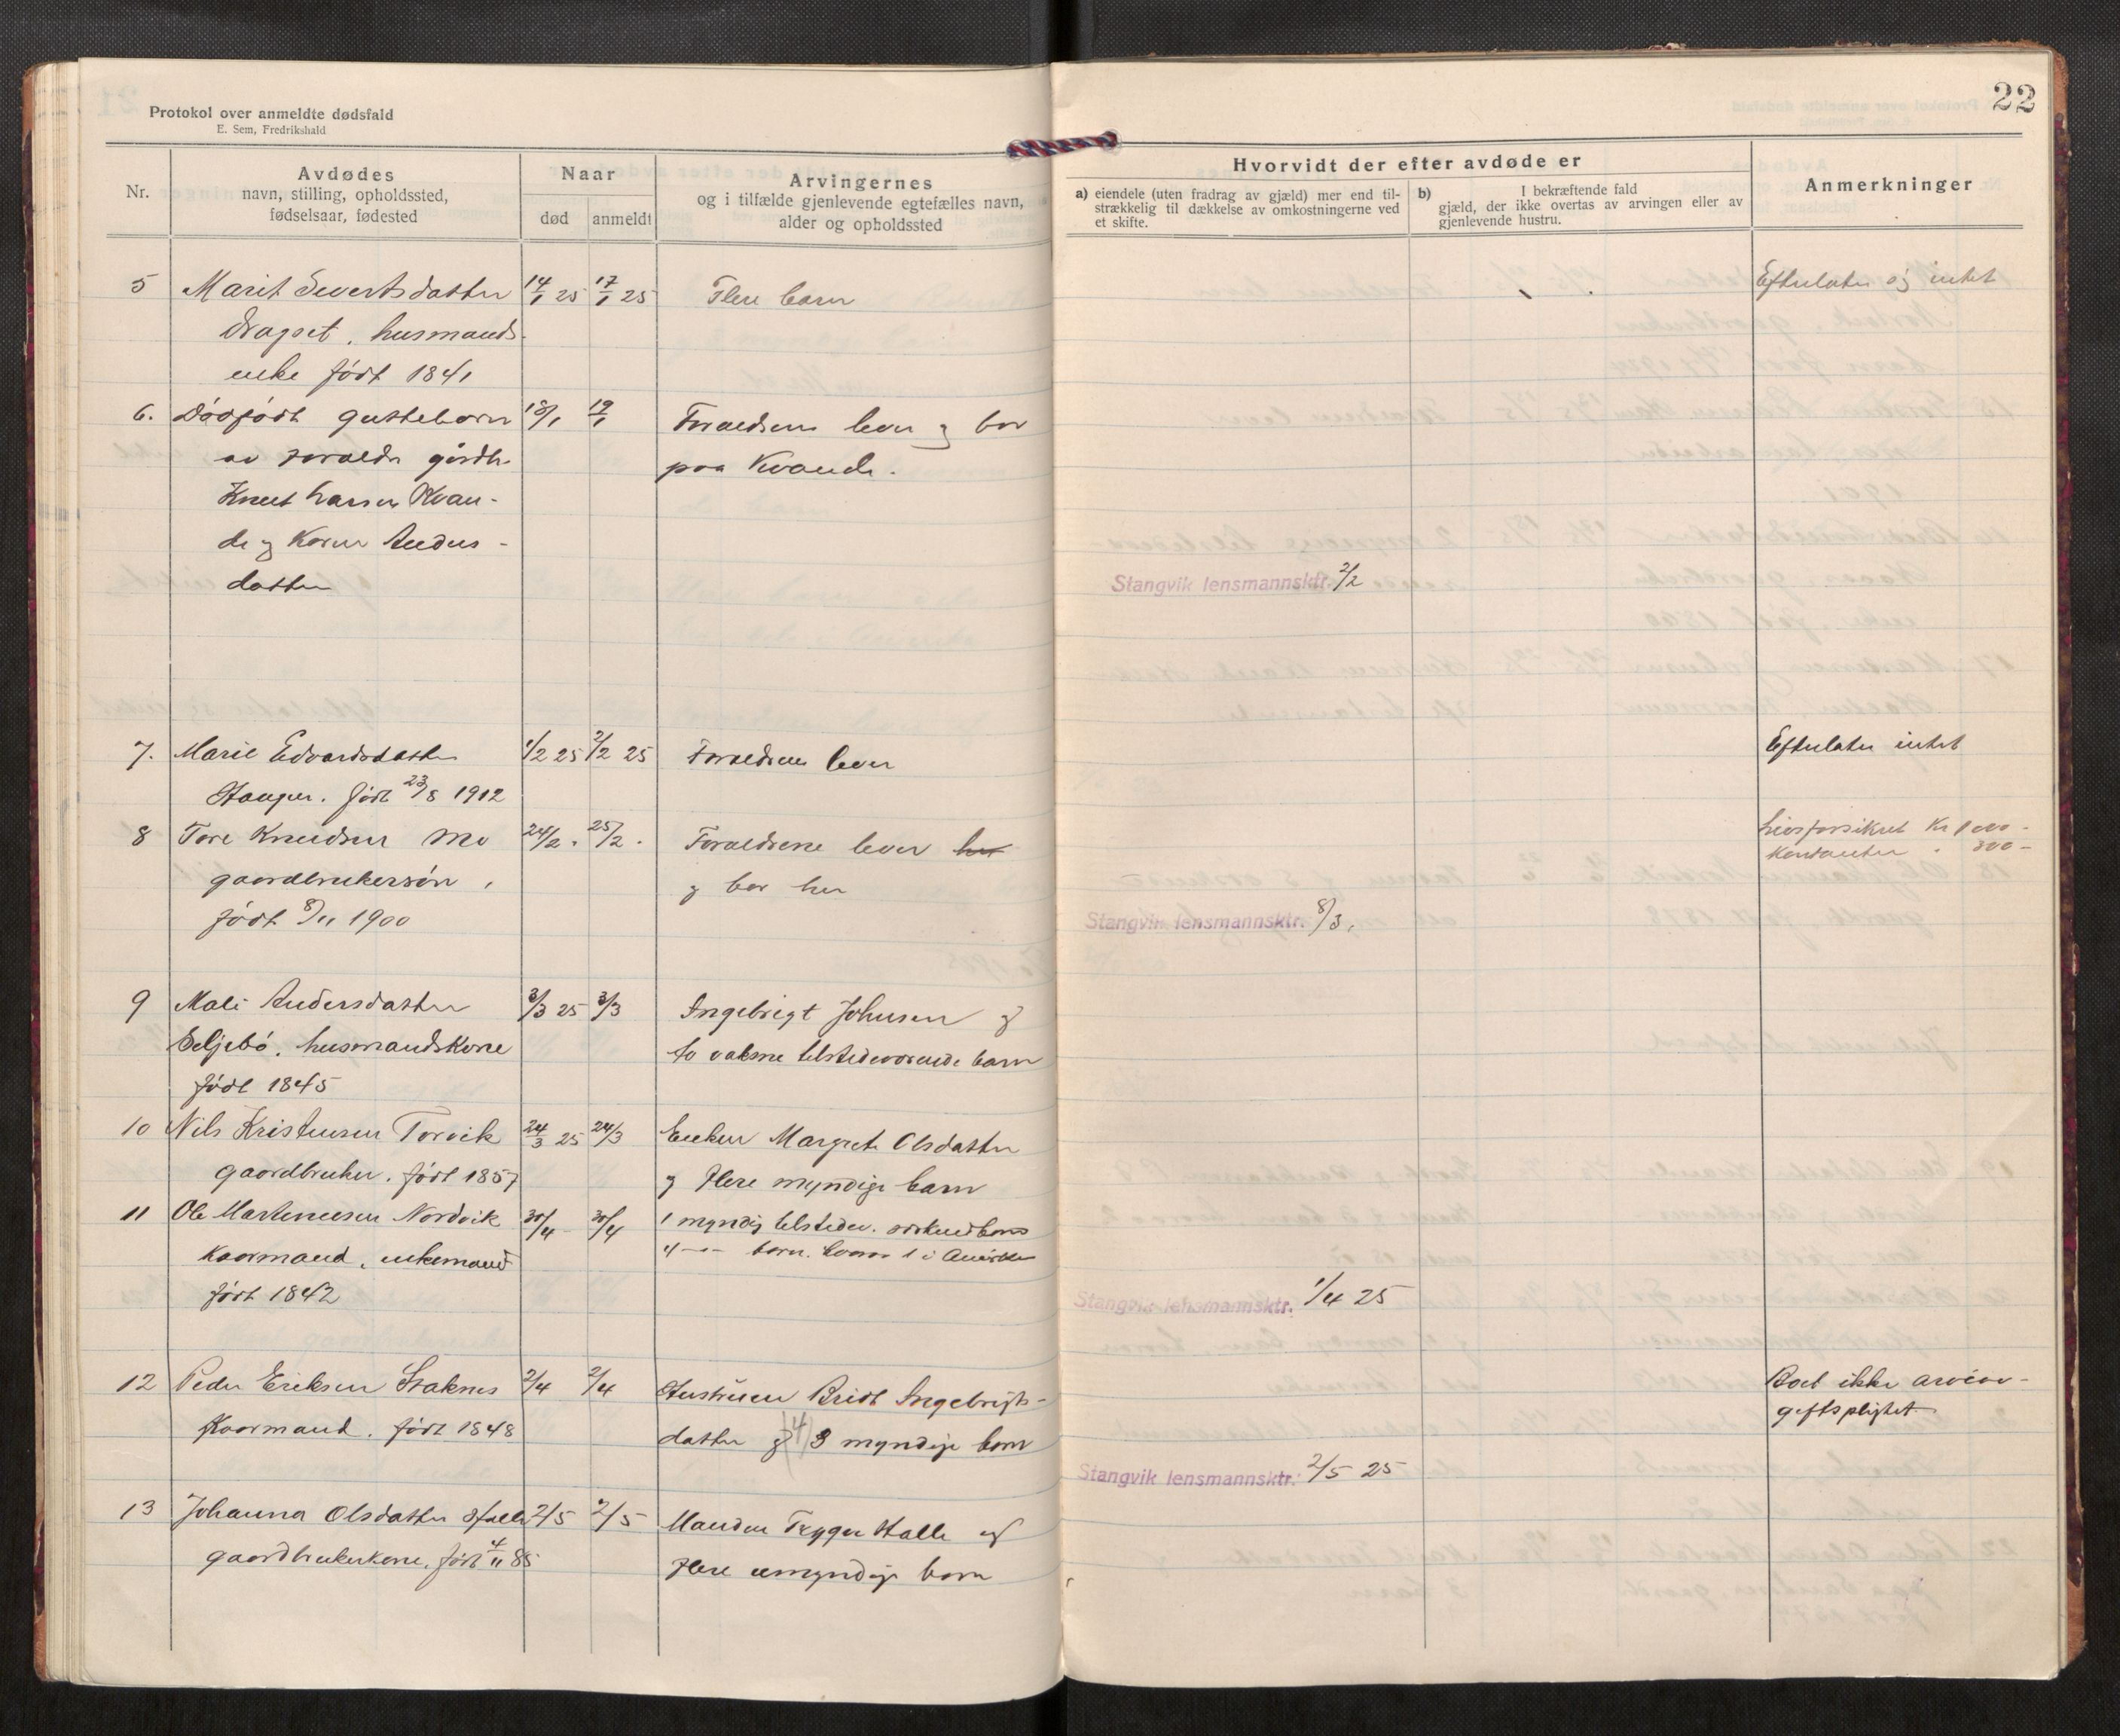 22
Protokol over anmeldte dødsfald
E. Sem, Fredrikshald
Nr.
Avdødes
navn, stilling, opholdssted,
fødselsaar, fødested
Naar
død
anmeldt
Arvingernes
og i tilfælde gjenlevende egtefælles navn,
alder og opholdssted
Hvorvidt der efter avdøde er
a) eiendele (uten fradrag av gjæld) mer end til-
strækkelig til dækkelse av omkostningerne ved
et skifte.
b) I bekræftende fald
gjæld, der ikke overtas av arvingen eller av
gjenlevende hustru.
Anmerkninger
5 Marit Sivertsdatter 14/1 25 17/1 25 Flere barn Efterlater sig intet
Dragset, husmands-
enke født 1841
6. Dødfødt guttebarn 18/1 19/1 Foraeldrene lever og bor
av foraeldr gårdbr. paa Kvande.
Knut Larsen Kvan-
de og Karen Anders-
datter
Stangvik lensmannsktr. 2/2
7. Marie Edvardsdatter 1/2 25 2/2 25 Foraeldrene lever Efterlater intet
født 23/8 1912
8 Tore Knudsen Mo 24/2. 25/2. Foraeldrene lever her Livsforsikret Kr 1000-
gaardbrukersøn, og bor her Kontanter " 300-
født 8/11 1900
Stangvik lensmannsktr. 8/3.
9 Mali Andersdatter 3/3 25 3/3 Ingebrigt Johnsen og
Seljebó, husmandskone to voksne tilstedeværende barn
født 1845
10 Nils Kristensen Torvik 24/3 25 24/3 Enken Margrete Olsdatter
gaardbruker. født 1857 og flere myndige barn
11 Ole Martinussen Nordvik 30/4 - 30/4 1 myndig tilstedev. barn
Kaarmand, enkemand 4 -"- barn. hvorav 1 i Amerika
født 1842
Stangvik lensmannsktr. 1/4 25
12 Peder Eriksen Staknes 2/4 2/4 Hustruen Brit Ingebrigts- Boet ikke arveav-
Kaarmand. født 1848 datter og (4) 3 myndige barn giftspligtet
Stangvik lensmannsktr. 2/5 25
13 Johanna Olsdatter Halle 2/5 2/5 Manden Trygge Halle og
gaardbrukerkone. født 4/11 85 flere umyndige barn